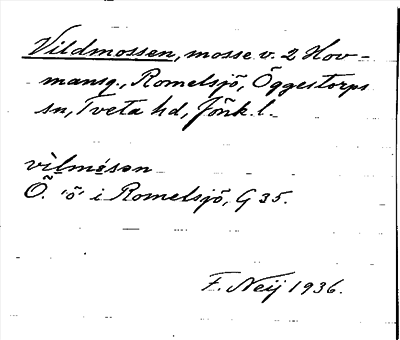 Vildmossen, mosse v. 2 Hov-
mansg., Romelsjö, Öggestorps
sn, Tveta hd, Jönk. l.
vìlmósən
Ö. 'ö' i Romelsjö, G 35.
F. Neij 1936.